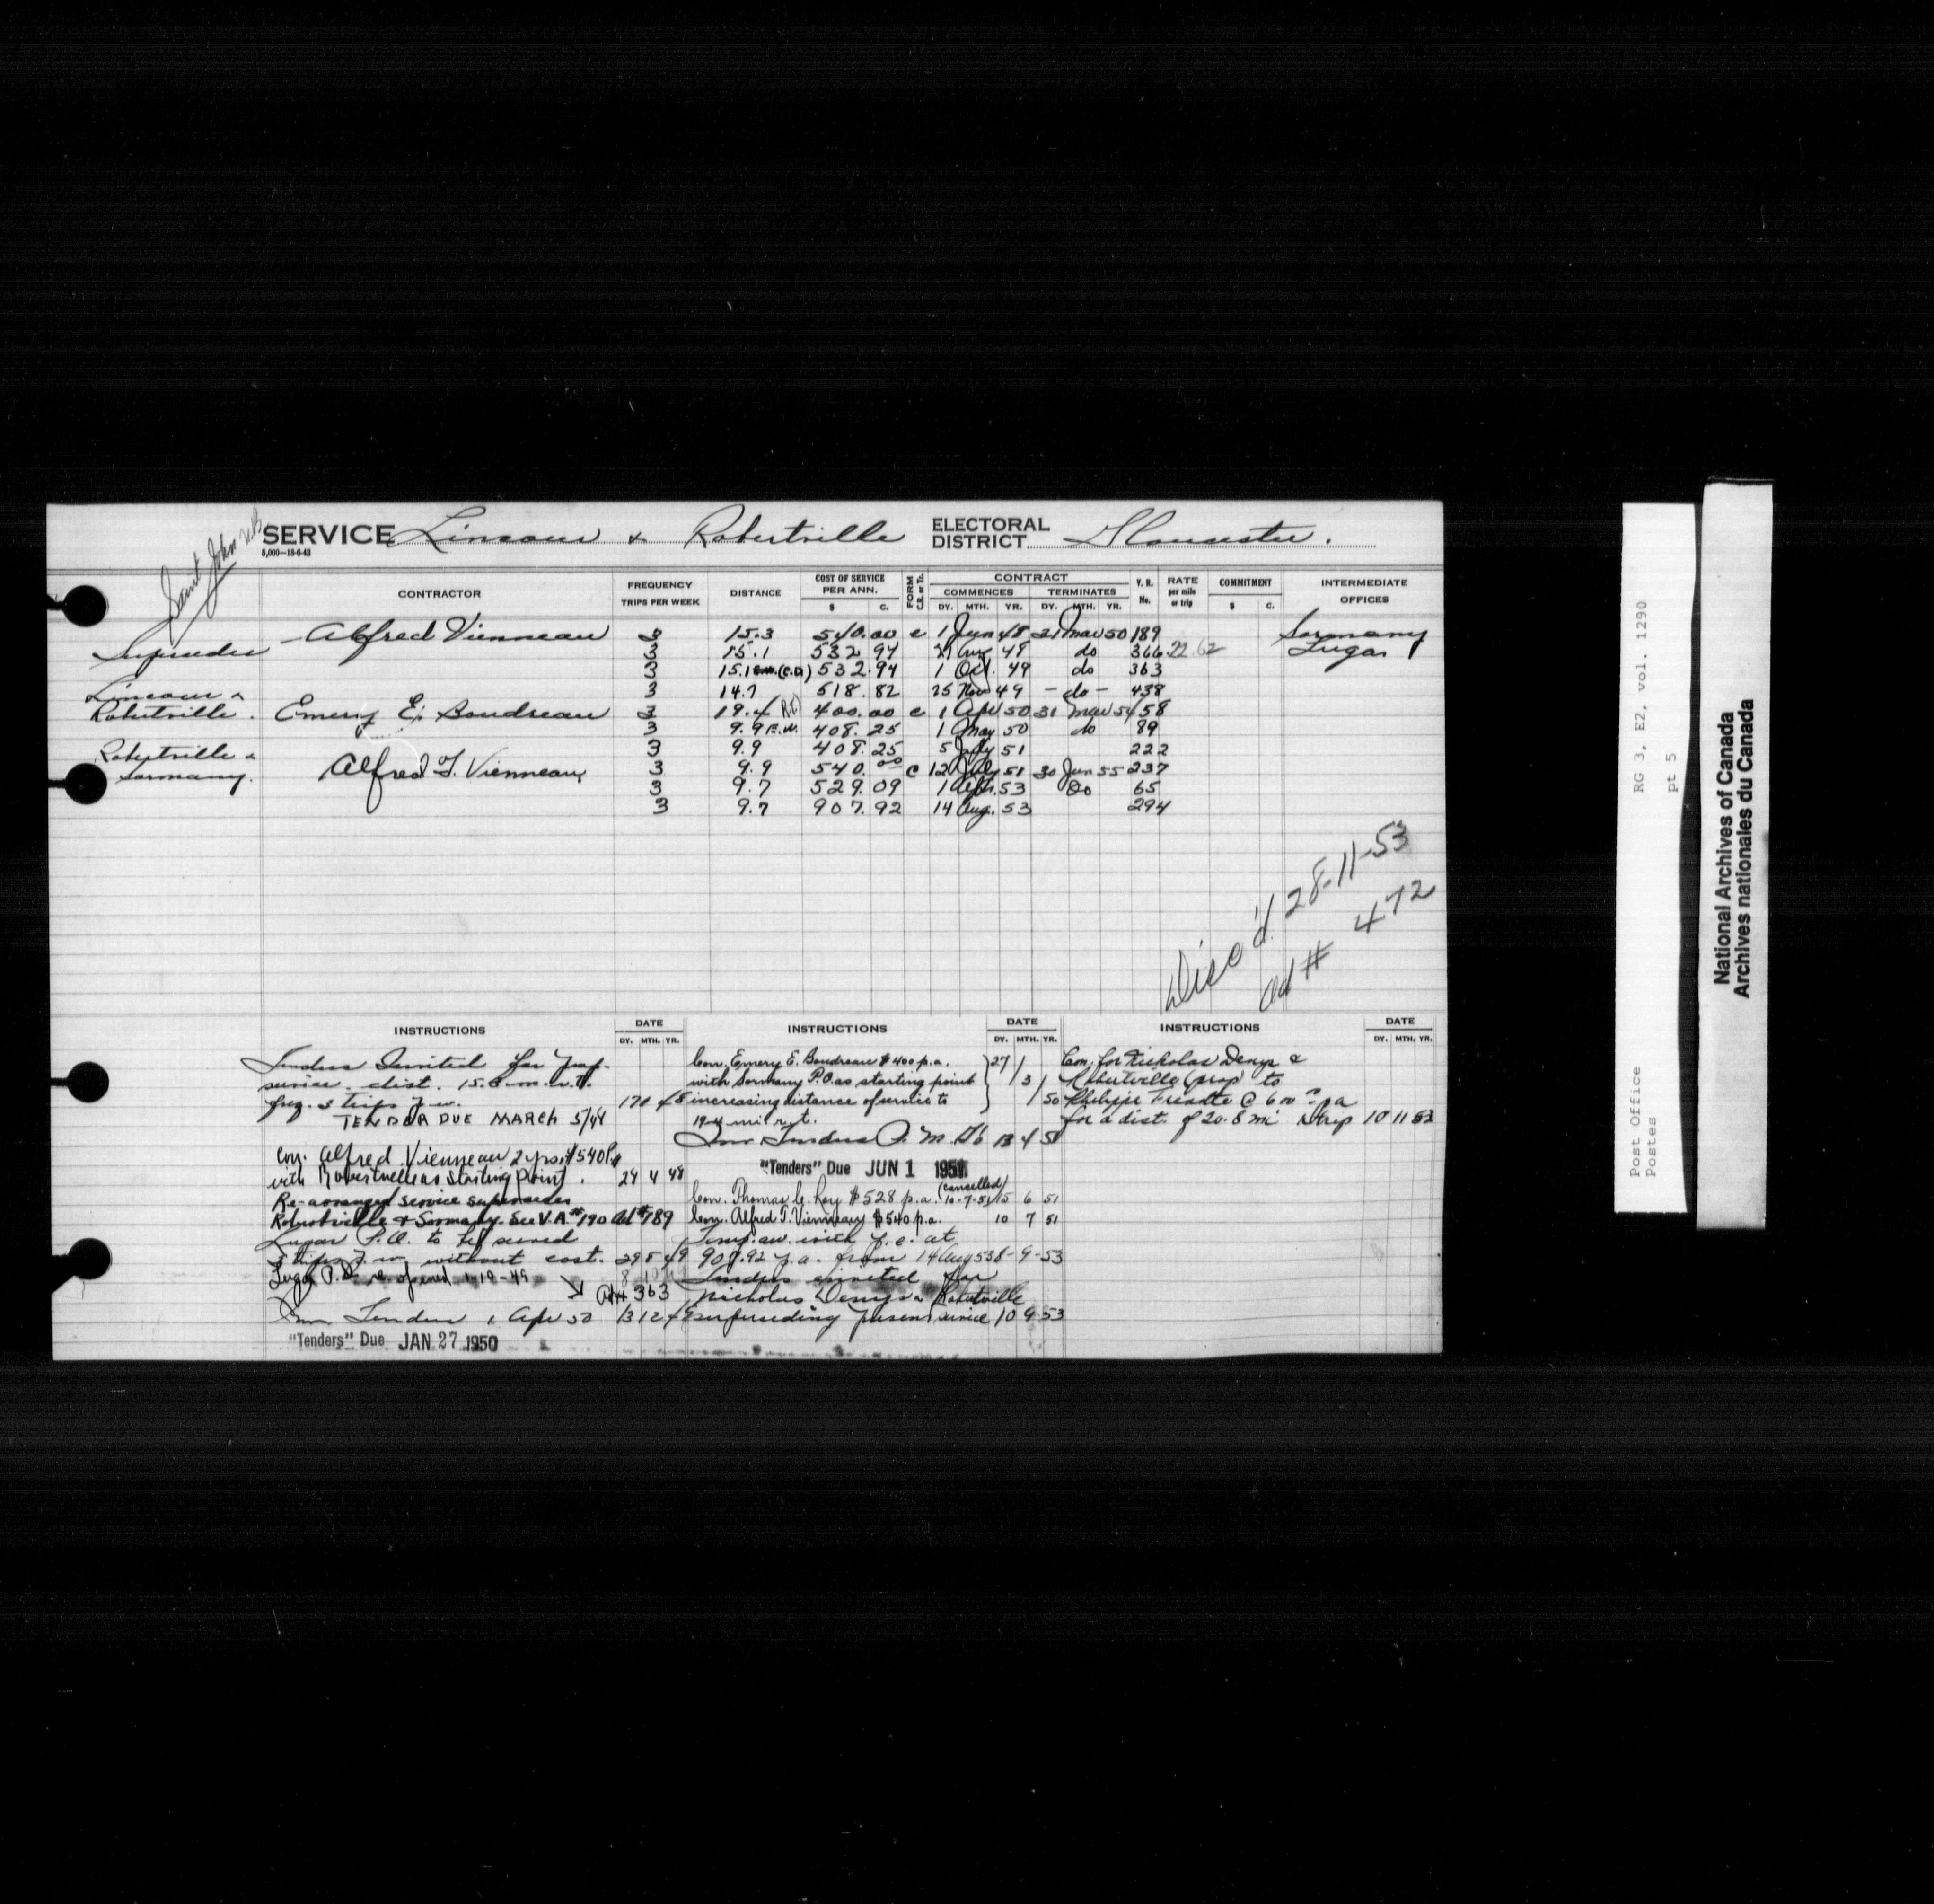 Saint John NB
SERVICE Lincour & Robertville ELECTORAL DISTRICT Gloucester.
5,000—18-6-43
CONTRACTOR FREQUENCY TRIPS PER WEEK DISTANCE COST OF SERVICE PER ANN. $ C. FORM C.E. or Tr. CONTRACT COMMENCES DY. MTH. YR. TERMINATES DY. MTH. YR. V. R. No. RATE per mile or trip COMMITMENT $ C. INTERMEDIATE OFFICES
Alfred Vienneau 3 15.3 540.00 c 1 Jun 48 31 Mar 50 189 Sormany
Supersedes 3 15.1 532 94 48 do 366 22.62 Lugar
3 15.1 (C.A) 532.94 1 Oct. 49 do 363
Lincour & 3 14.7 518.82 25 Nov 49 - do - 438
Robertville. Emery E. Boudreau 3 19.4 (R.T.) 400.00 c 1 Apr 50 31 Mar 54 58
3 9.9 E.W. 408.25 1 May 50 do 89
Robertville & 3 9.9 408.25 5 July 51 222
Sormany. Alfred T. Vienneau 3 9.9 540.00 c 12 July 51 30 Jun 55 237
3 9.7 529.09 1 Apr. 53 Do 65
3 9.7 907.92 14 Aug. 53 294
Disc'd. 28-11-53
Ad # 472
INSTRUCTIONS DATE DY. MTH. YR.
Tenders Invited for
service. dist. 15.
freq. 3 trips p.w.
TENDER DUE MARCH 5/48
Con. Alfred Vienneau 2 yrs. $540 P.A
with Robertville as starting point. 24 4 48
Re-arranged service supersedes
Robertville & Sormany. See V.A.# 190 Ad # 189
Lugar P.O. to be served
3 trips p.w. without cost. 29 8 49
Lugar P.O. re-opened 1-10-49
Ad # 363
Inv. Tenders 1 Apr 50 13 12 49
"Tenders" Due JAN 27 1950
INSTRUCTIONS DATE DY. MTH. YR.
Con. Emery E. Boudreau $400 p.a. 27/
with Sormany P.O. as starting point 3/
increasing distance of service to 50
19.4 mil r.t.
Inv Tenders 4
"Tenders" Due JUN 1 1951
(cancelled)
Con. Thomas C. Roy $528 p.a. 10-7-51 15 6 51
Con. Alfred T. Vienneau $540 p.a. 10 7 51
Temp. aw. with p.c. at
907.92 p.a. from 14 Aug 53 8-9-53
Tenders invited for
Nicholas Denys & Robertville
superseding present service 10 9 53
INSTRUCTIONS DATE DY. MTH. YR.
Con. for Nicholas Denys &
Robertville (prop) to
Philippe @ 600 pa
for a dist. of 20.8 mi 10 11 53
Post Office RG 3, E2, vol. 1290
Postes pt 5
National Archives of Canada
Archives nationales du Canada